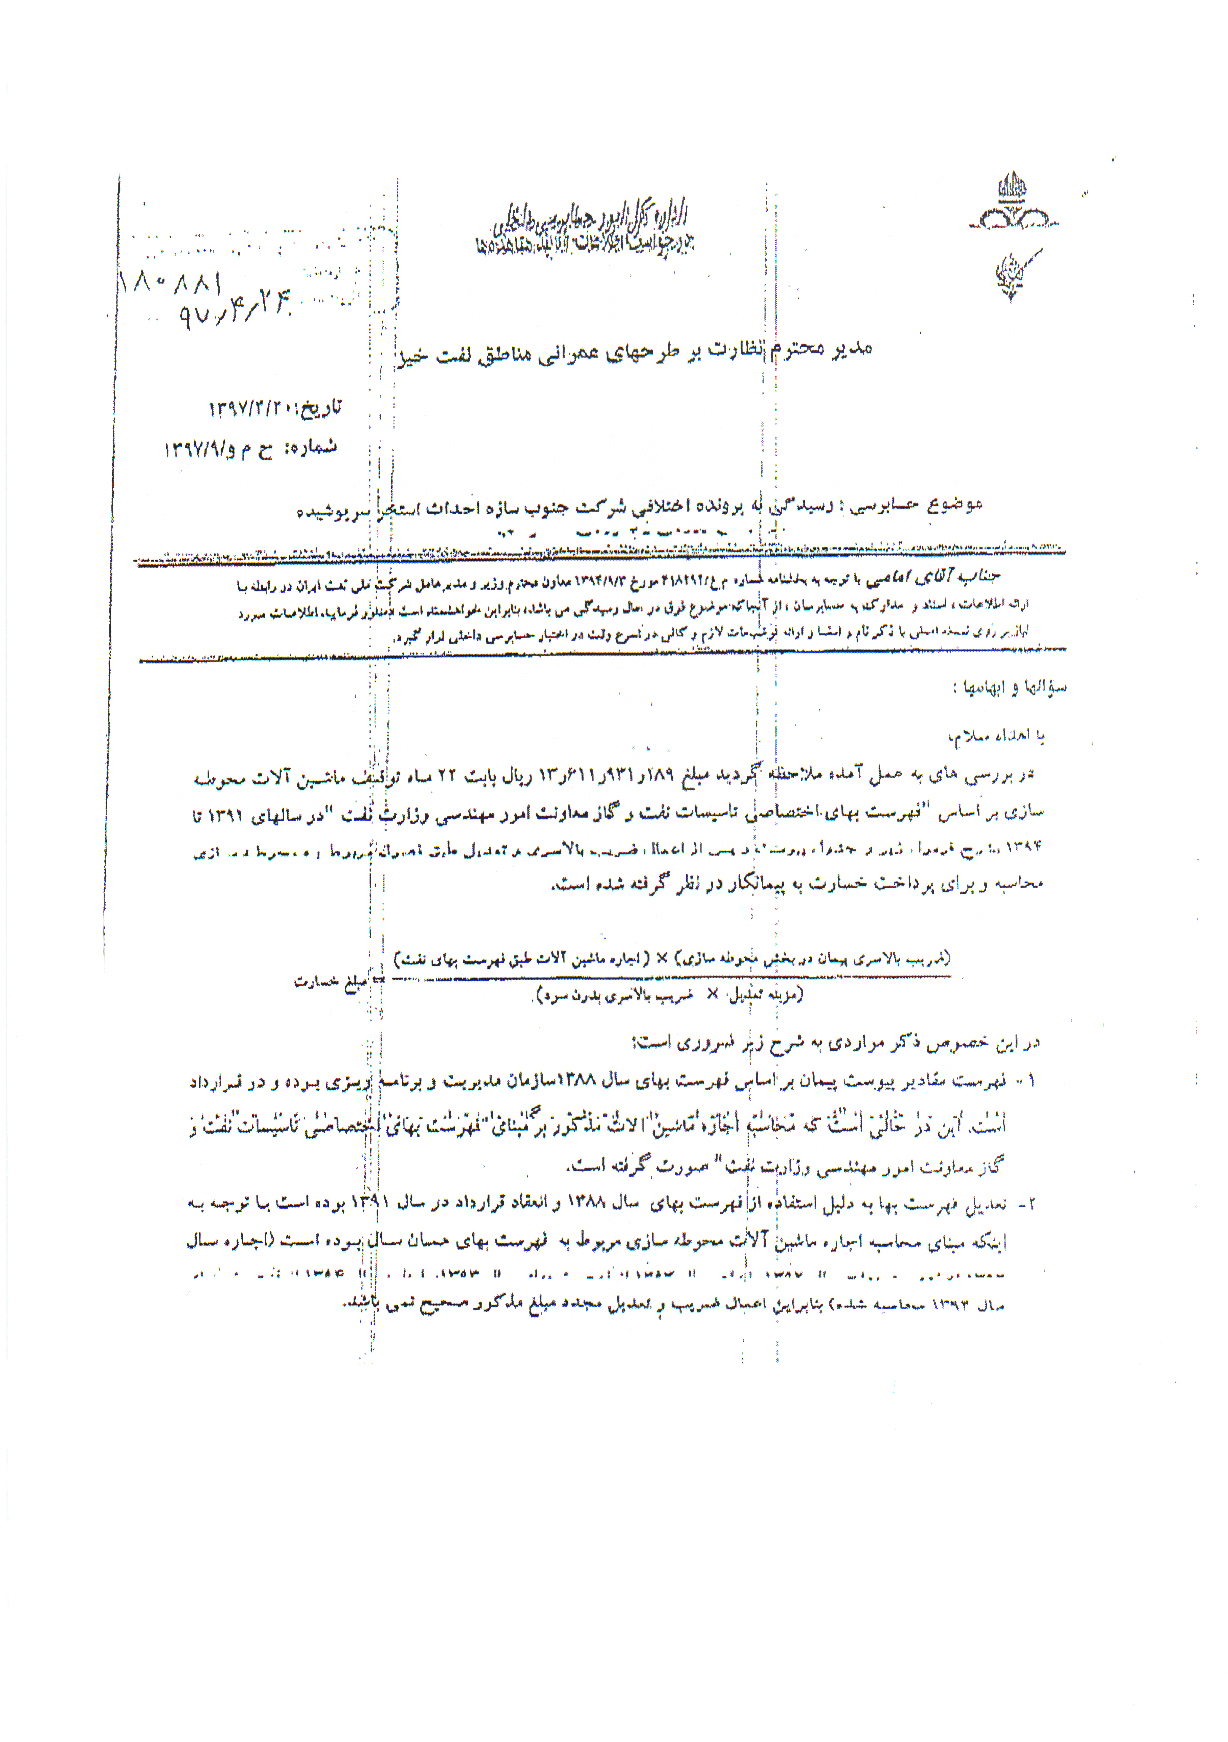 اداره کل امور حسابرسی داخلی
درخواست اطلاعات و تائید مشاهده‌ها
۱۸۰۸۸۱
۹۷٫۴٫۲۴
مدیر محترم نظارت بر طرحهای عمرانی مناطق نفت خیز
تاریخ: ۱۳۹۷/۳/۲۰
شماره: ح م و/۱۳۹۷/۹
موضوع حسابرسی : رسیدگی به پرونده اختلافی شرکت جنوب سازه احداث استخر سرپوشیده
جناب آقای امامی با توجه به بخشنامه شماره م ع/۴۱۸۲۹۲ مورخ ۱۳۹۴/۹/۳ معاون محترم وزیر و مدیر عامل شرکت ملی نفت ایران در رابطه با
ارائه اطلاعات ، اسناد و مدارک به حسابرسان ، از آنجاکه موضوع فوق در حال رسیدگی می باشد، بنابراین خواهشمند است دستور فرمایید اطلاعات مورد
نیاز بر روی نسخه اصلی با ذکر نام و امضا و ارائه توضیحات لازم و کافی در اسرع وقت در اختیار حسابرسی داخلی قرار گیرد.
سؤالها و ابهامها :
با اهداء سلام،
در بررسی های به عمل آمده ملاحظه گردید مبلغ ۱۸۹ر۹۳۱ر۶۱۱ر۱۳ ریال بابت ۲۲ ماه توقیف ماشین آلات محوطه
سازی بر اساس "فهرست بهای اختصاصی تاسیسات نفت و گاز معاونت امور مهندسی وزارت نفت "در سالهای ۱۳۹۱ تا
۱۳۹۴ بشرح فرمول زیر و جداول پیوست و پس از اعمال ضریب بالاسری و تعدیل طبق
محاسبه و برای پرداخت خسارت به پیمانکار در نظر گرفته شده است.
(ضریب بالاسری پیمان در بخش محوطه سازی) × (اجاره ماشین آلات طبق فهرست بهای نفت)
مبلغ خسارت =
(هزینه تعدیل × ضریب بالاسری بدون سود)
در این خصوص ذکر مواردی به شرح زیر ضروری است:
۱- فهرست مقادیر پیوست پیمان بر اساس فهرست بهای سال ۱۳۸۸ سازمان مدیریت و برنامه ریزی بوده و در قرارداد
است. این در حالی است که محاسبه اجاره ماشین آلات مذکور بر مبنای "فهرست بهای اختصاصی تاسیسات نفت و
گاز معاونت امور مهندسی وزارت نفت" صورت گرفته است.
۲- تعدیل فهرست بها به دلیل استفاده از فهرست بهای سال ۱۳۸۸ و انعقاد قرارداد در سال ۱۳۹۱ بوده است با توجه به
اینکه مبنای محاسبه اجاره ماشین آلات محوطه سازی مربوط به فهرست بهای همان سال بوده است (اجاره سال
سال ۱۳۹۳ محاسبه شده) بنابراین اعمال ضریب و تعدیل مجدد مبلغ مذکور صحیح نمی باشد.